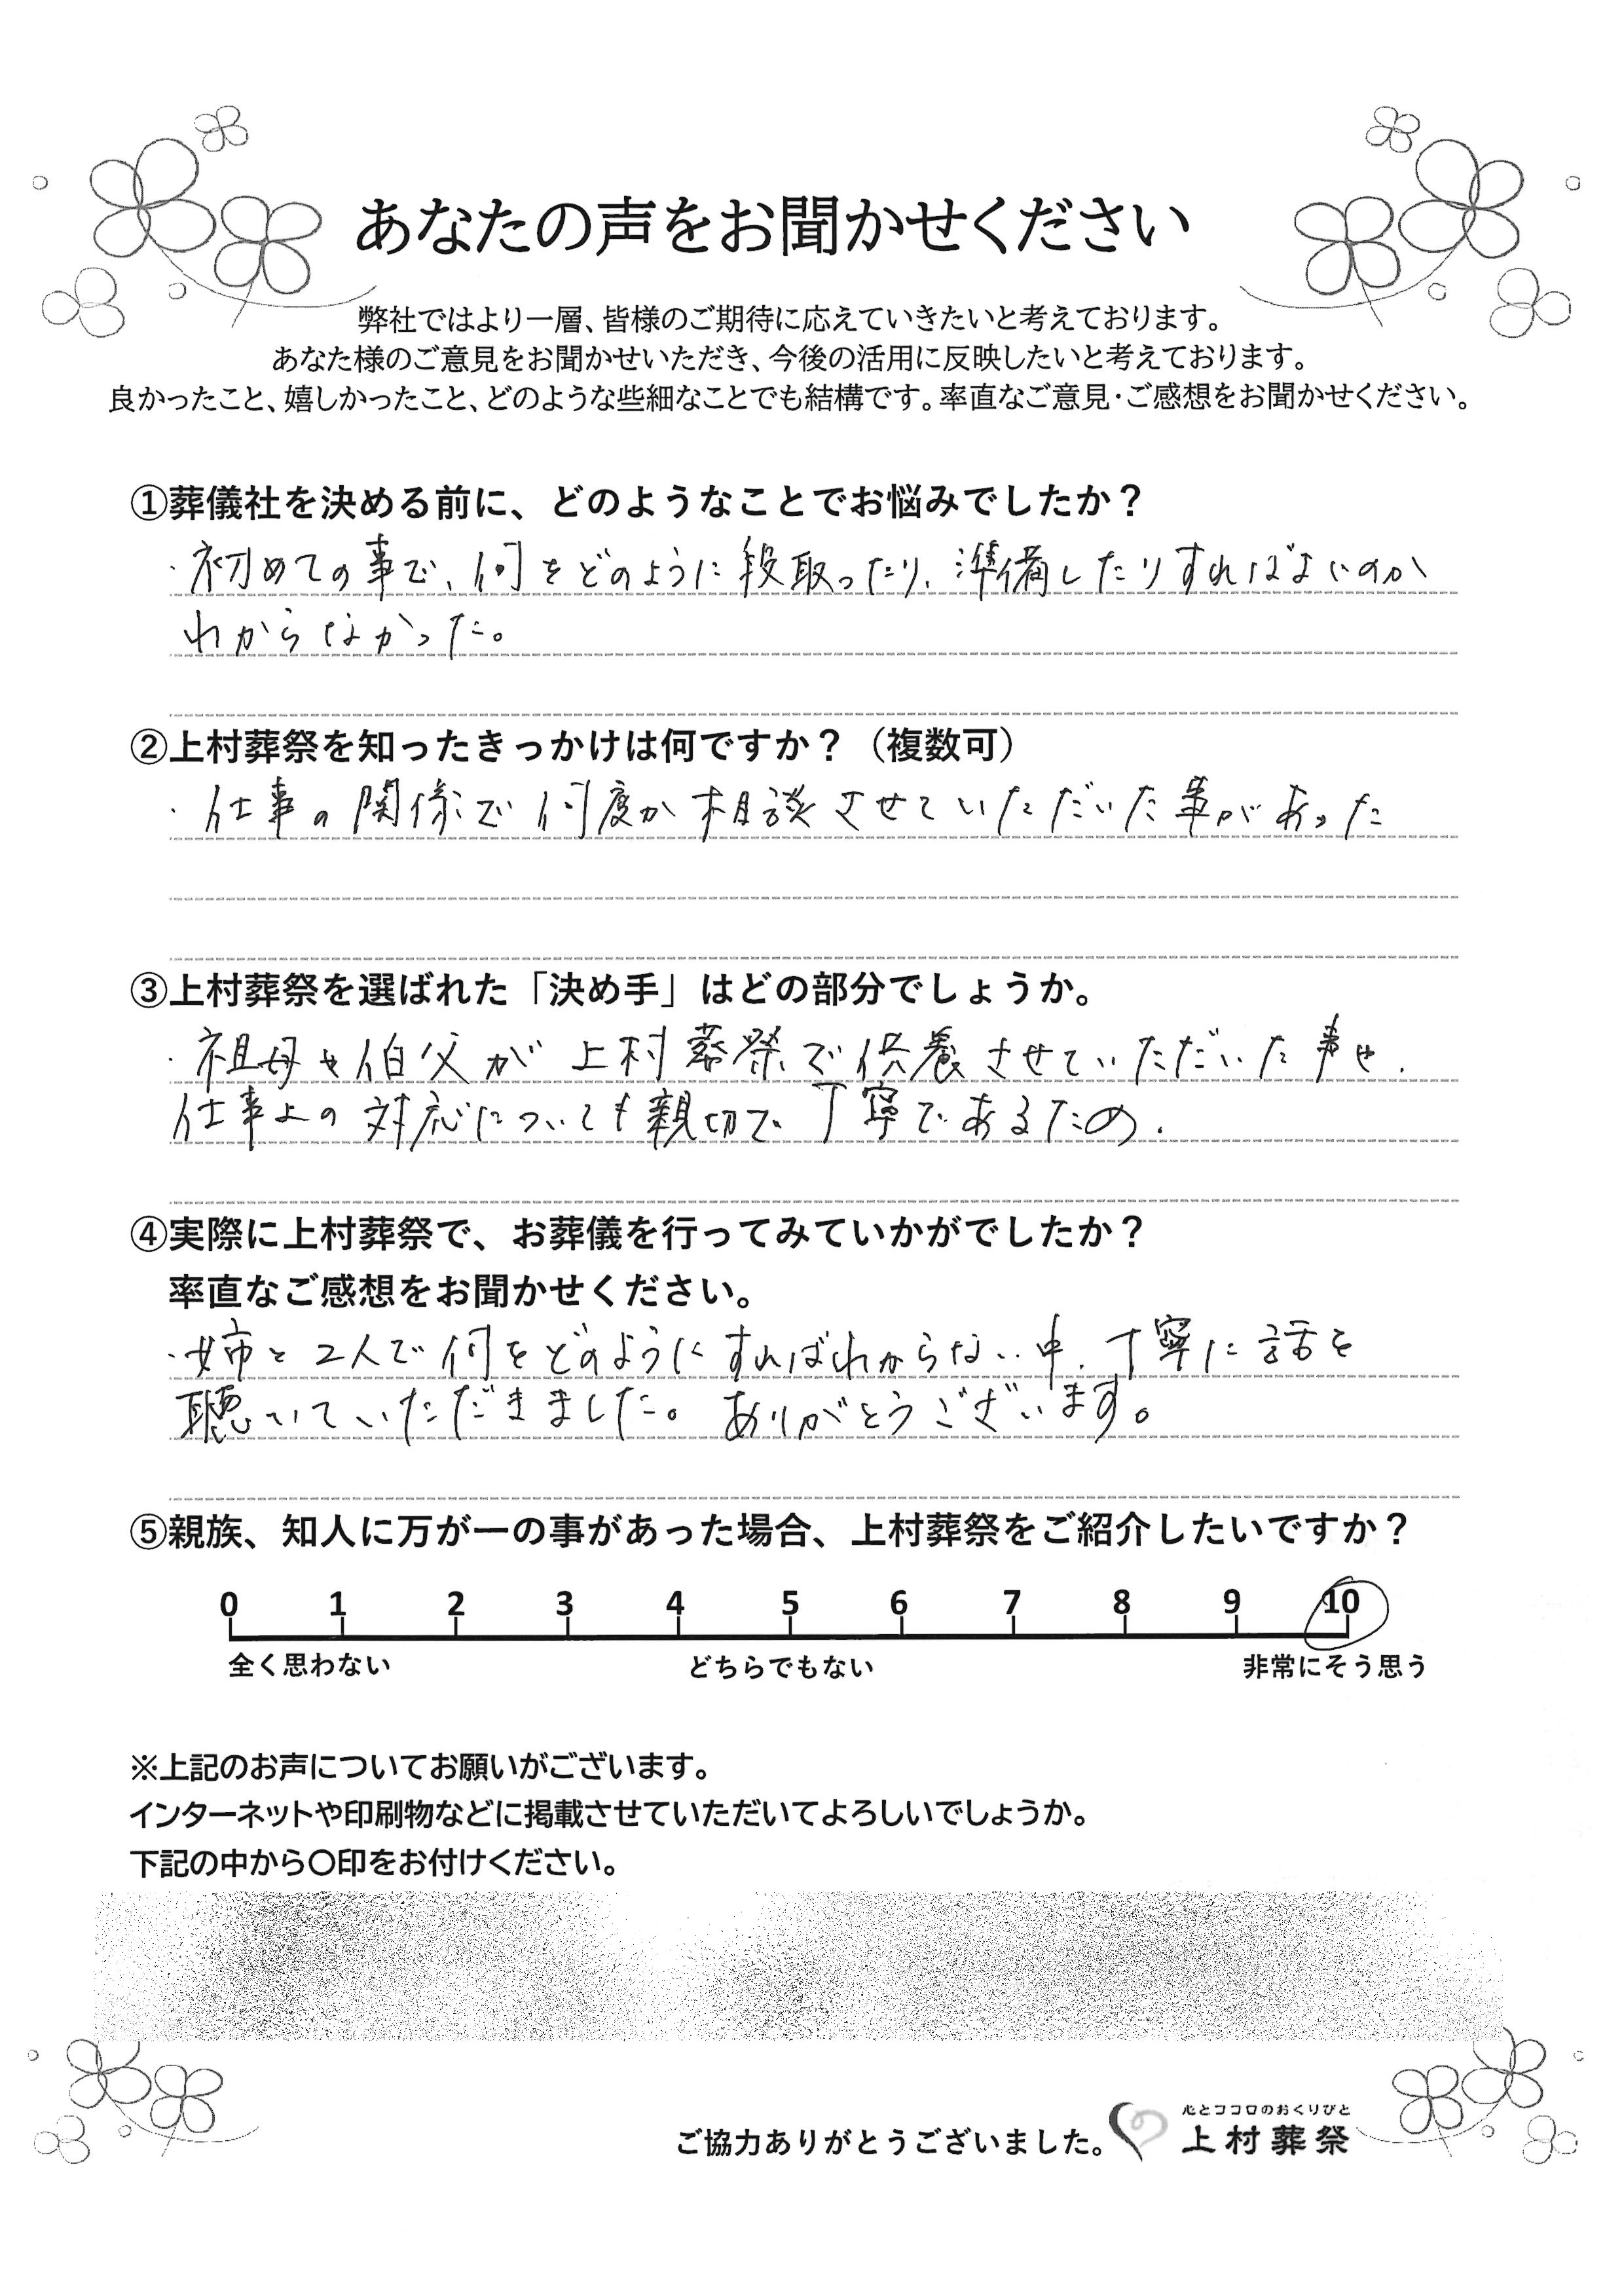 あなたの声をお聞かせください
弊社ではより一層、皆様のご期待に応えていきたいと考えております。
あなた様のご意見をお聞かせいただき、今後の活用に反映したいと考えております。
良かったこと、嬉しかったこと、どのような些細なことでも結構です。率直なご意見・ご感想をお聞かせください。
①葬儀社を決める前に、どのようなことでお悩みでしたか？
・初めての事で、何をどのように段取ったり、準備したりすればよいのか
わからなかった。
②上村葬祭を知ったきっかけは何ですか？（複数可）
・仕事の関係で何度か相談させていただいた事があった
③上村葬祭を選ばれた「決め手」はどの部分でしょうか。
・祖母や伯父が上村葬祭で供養させていただいた事や、
仕事上の対応についても親切で丁寧であるため。
④実際に上村葬祭で、お葬儀を行ってみていかがでしたか？
率直なご感想をお聞かせください。
・姉と2人で何をどのようにすればわからない中、丁寧に話を
聴いていただきました。ありがとうございます。
⑤親族、知人に万が一の事があった場合、上村葬祭をご紹介したいですか？
0 1 2 3 4 5 6 7 8 9 10
全く思わない どちらでもない 非常にそう思う
※上記のお声についてお願いがございます。
インターネットや印刷物などに掲載させていただいてよろしいでしょうか。
下記の中から〇印をお付けください。
心とココロのおくりびと
ご協力ありがとうございました。上村葬祭